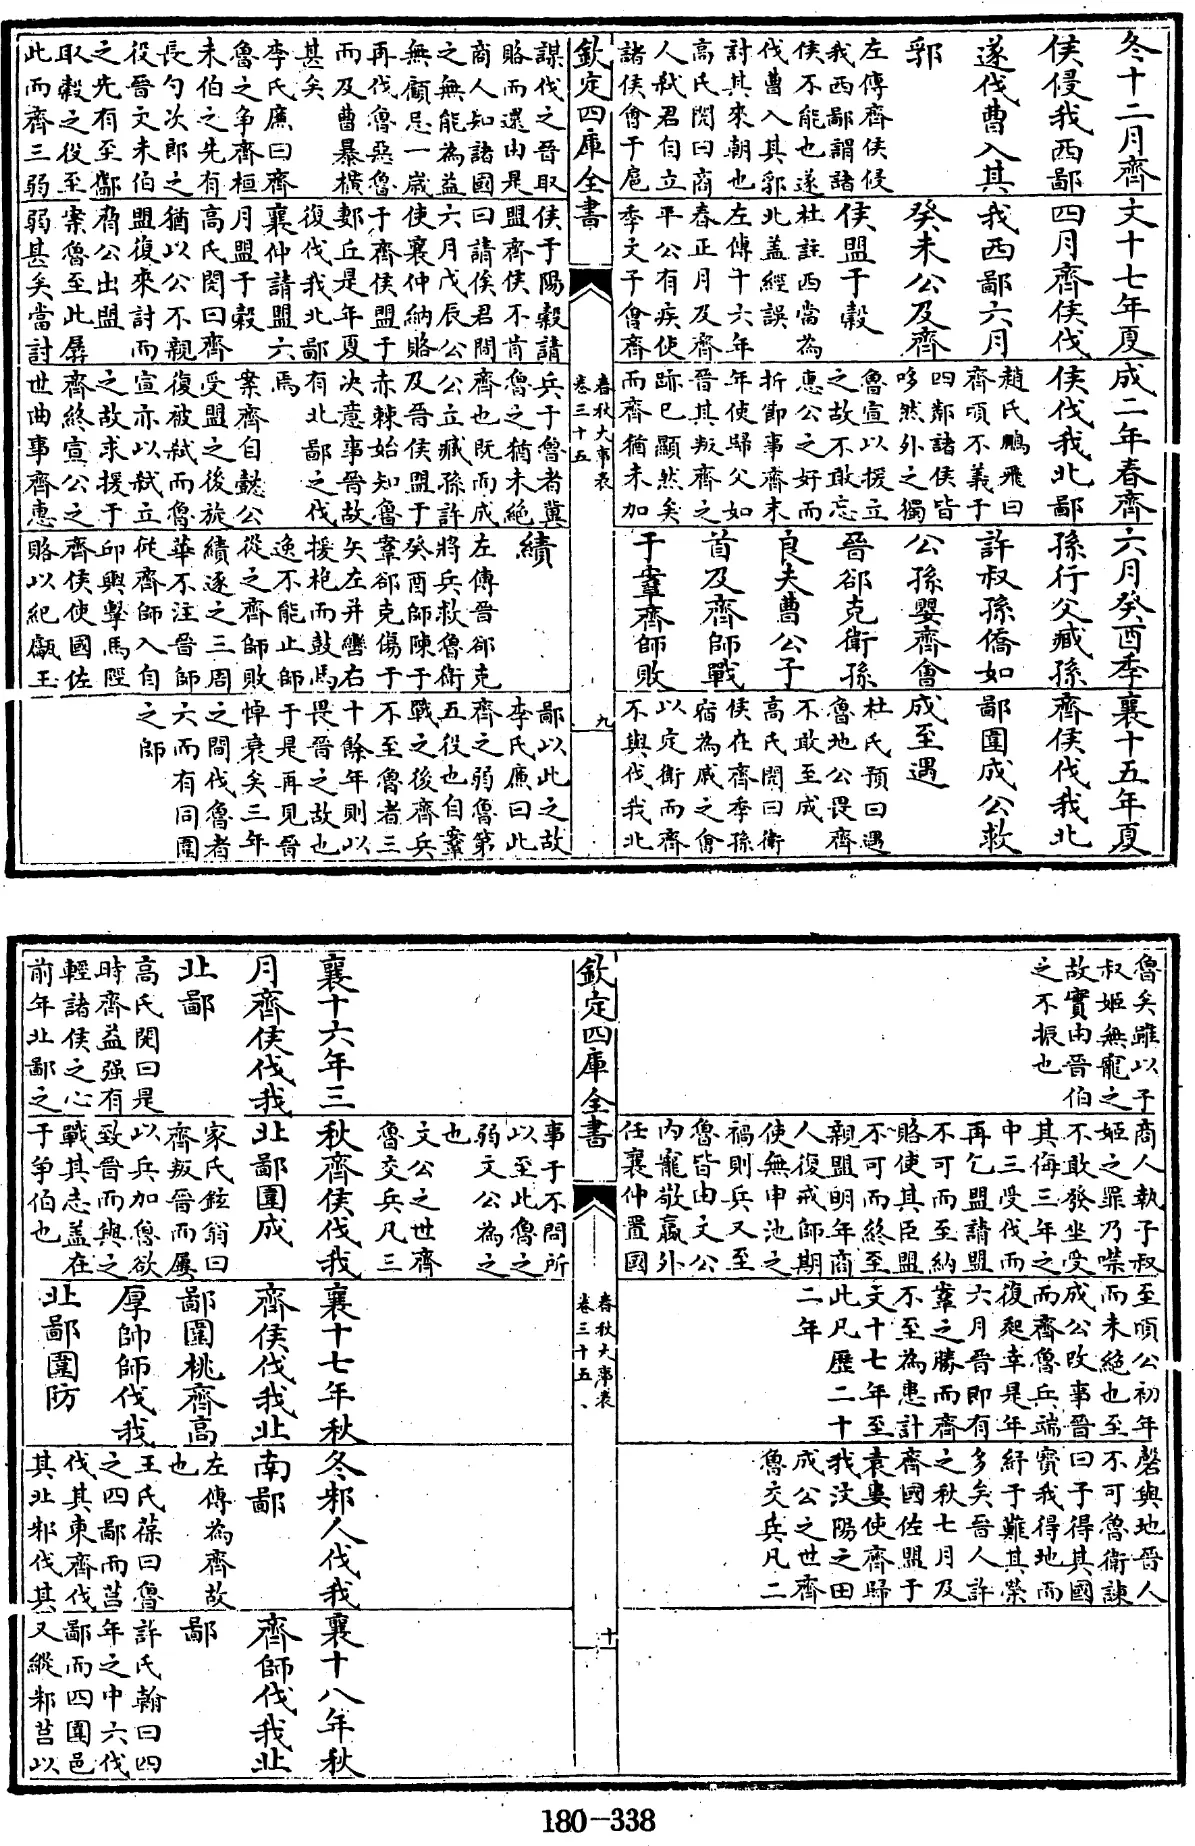 冬十二月齊
侯侵我西鄙
遂伐曹入其
郛
左傳齊侯侵
我西鄙謂諸
侯不能也遂
伐曹入其郛
討其來朝也
高氏閌曰商
人弑君自立
諸侯會于扈
謀伐之晉取
賂而還由是
商人知諸國
之無能為益
無顧忌一嵗
再伐魯惡魯
而及曹暴橫
甚矣
李氏廉曰齊
魯之争齊桓
未伯之先有
長勺次郎之
役晉文未伯
之先有至酅
取穀之役至
此而齊三弱
文十七年夏
四月齊侯伐
我西鄙六月
癸未公及齊
侯盟于穀
杜註西當為
北蓋經誤
左傳十六年
春正月及齊
平公有疾使
季文子會齊
侯于陽穀請
盟齊侯不肯
曰請俟君閒
六月戊辰公
使襄仲納賂
于齊侯盟于
郪丘是年夏
復伐我北鄙
襄仲請盟六
月盟于穀
高氏閌曰齊
猶以公不親
盟復來討而
脅公出盟
案魯至此孱
弱甚矣當討
成二年春齊
侯伐我北鄙
趙氏鵬飛曰
齊頃不義于
四鄰諸侯皆
哆然外之獨
魯宣以援立
之故不敢忘
惠公之好而
折節事齊末
年使歸父如
晉其叛齊之
跡已顯然矣
而齊猶未加
兵于魯者冀
魯之猶未絶
齊也既而成
公立臧孫許
及晉侯盟于
赤棘始知魯
决意事晉故
有北鄙之伐
焉
案齊自懿公
受盟之後旋
復被弑而魯
宣亦以弑立
之故求援于
齊終宣公之
世曲事齊惠
六月癸酉季
孫行父臧孫
許叔孫僑如
公孫嬰齊會
晉郤克衞孫
良夫曹公子
首及齊師戰
于鞌齊師敗
績
左傳晉郤克
將兵救魯衞
癸酉師陳于
鞌郤克傷于
矢左并轡右
援枹而鼓馬
逸不能止師
從之齊師敗
績遂之三周
華不注晉師
從齊師入自
邱輿擊馬陘
齊侯使國佐
賂以紀甗玉
襄十五年夏
齊侯伐我北
鄙圍成公救
成至遇
杜氏預曰遇
魯地公畏齊
不敢至成
高氏閌曰衞
侯在齊季孫
宿為戚之會
以定衞而齊
不與伐我北
鄙以此之故
李氏廉曰此
齊之弱魯第
五役也自鞌
戰之後齊兵
不至魯者三
十餘年則以
畏晉之故也
于是再見晉
悼衰矣三年
之間伐魯者
六而有同圍
之師
欽定四庫全書
春秋大事表
卷三十五
九
魯矣雖以子
叔姬無寵之
故實由晉伯
之不振也
商人執子叔
姬之罪乃㗖
不敢發坐受
其侮三年之
中三受伐而
再乞盟請盟
不可而至納
賂使其臣盟
不可而終至
親盟明年商
人復戒師期
使無申池之
禍則兵又至
魯皆由文公
内寵敬嬴外
任襄仲置國
事于不問所
以至此魯之
弱文公為之
也
文公之世齊
魯交兵凡三
至頃公初年
而未絶也至
成公改事晉
而齊魯兵端
復起幸是年
六月晉即有
鞌之勝而齊
不至為患計
文十七年至
此凡歷二十
二年
磬與地晉人
不可魯衞諫
曰子得其國
寳我得地而
紓于難其榮
多矣晉人許
之秋七月及
齊國佐盟于
袁婁使齊歸
我汶陽之田
成公之世齊
魯交兵凡二
欽定四庫全書
春秋大事表
卷三十五
十
襄十六年三
月齊侯伐我
北鄙
高氏閌曰是
時齊益强有
輕諸侯之心
前年北鄙之
秋齊侯伐我
北鄙圍成
家氏鉉翁曰
齊叛晉而屢
以兵加魯欲
致晉而與之
戰其志蓋在
于争伯也
襄十七年秋
齊侯伐我北
鄙圍桃齊高
厚帥師伐我
北鄙圍防
冬邾人伐我
南鄙
左傳為齊故
也
王氏葆曰魯
之四鄙而莒
伐其東齊伐
其北邾伐其
襄十八年秋
齊師伐我北
鄙
許氏翰曰四
年之中六伐
鄙而四圍邑
又縱邾莒以
180-338